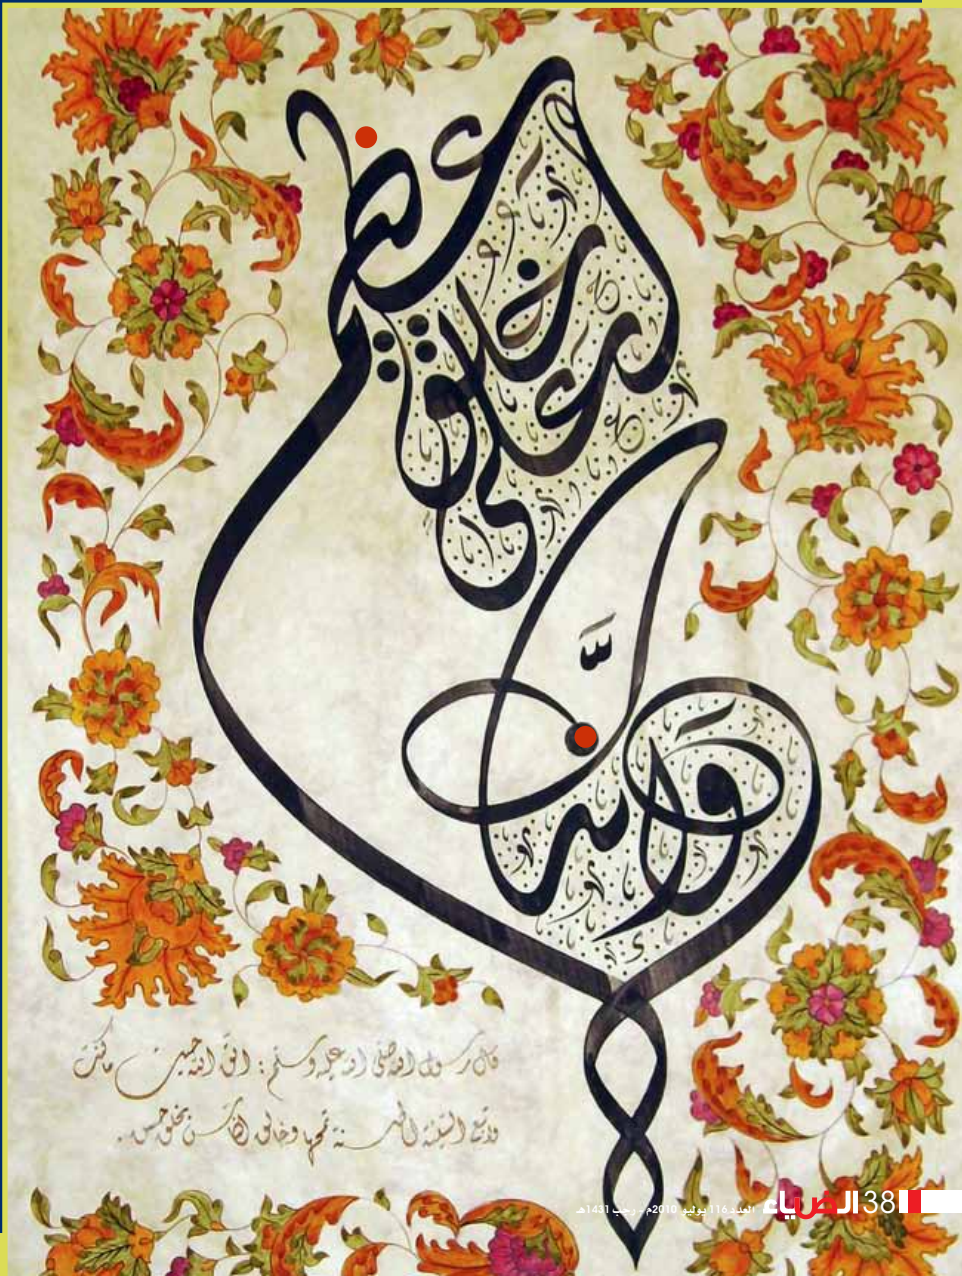 وإنك
لعلى خلق
عظيم
قال رسول الله صلى الله عليه وسلم: اتق الله حيث ما كنت
واتبع السيئة الحسنة تمحها وخالق الناس بخلق حسن.
38 الضياء العدد 116 يوليو 2010م - رجب 1431هـ